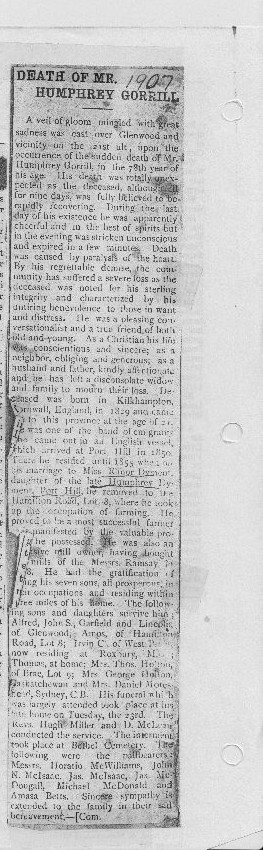 DEATH OF MR. 1907
HUMPHREY GORRILL
A veil of gloom mingled with great
sadness was cast over Glenwood and
vicinity on the 21st ult, upon the
occurrence of the sudden death of Mr.
Humphrey Gorrill, in the 78th year of
his age. His death was totally unex-
pected as the deceased, although ill
for nine days, was fully believed to be
rapidly recovering. During the last
day of his existence he was apparently
cheerful and in the best of spirits but
in the evening was stricken unconscious
and expired in a few minutes. Death
was caused by paralysis of the heart.
By his regrettable demise, the com-
munity has suffered a severe loss as the
deceased was noted for his sterling
integrity and characterized by his
untiring benevolence to those in want
and distress. He was a pleasing con-
versationalist and a true friend of both
old and young. As a Christian his life
was conscientious and sincere; as a
neighbor, obliging and generous; as a
husband and father, kindly affectionate
and he has left a disconsolate widow
and family to mourn their loss. De-
ceased was born in Kilkhampton,
Cornwall, England, in 1829 and came
to this province at the age of 21.
He was one of the band of emigrants
came out in an English vessel,
which arrived at Port Hill in 1850.
There he resided until 1855 when on
his marriage to Miss Dyment,
daughter of the late Humphrey Dy-
ment, Port Hill, he removed to the
Hamilton Road, Lot 8, where he took
up the occupation of farming. He
proved to be a most successful farmer
manifested by the valuable pro-
he possessed. He was also an
mill owner, having bought
mills of the Messrs. Ramsay in
He had the gratification of
his seven sons, all prosperous, in
occupations and residing within
three miles of his home. The follow-
ing sons and daughters survive him:
Alfred, John S., Garfield and Lincoln,
of Glenwood; Amos, of Hamilton
Road, Lot 8; Irvin C., of West
now residing at Roxbury,
Thomas, at home; Mrs. Thos.
of Brae, Lot 9; Mrs. George
Saskatchewan and Mrs. Daniel
Sydney, C.B. His funeral which
was largely attended took place at his
late home on Tuesday, the 23rd. The
Revs. Hugh Miller and D. McLeod
conducted the service. The interment
took place at Bethel Cemetery. The
following were the pallbearers:
Messrs. Horatio McWilliams, John
N. McIsaac, Jas. McIsaac, Jas. Mc-
Dougall, Michael McDonald and
Amasa Betts. Sincere sympathy is
extended to the family in their sad
bereavement.—[Com.